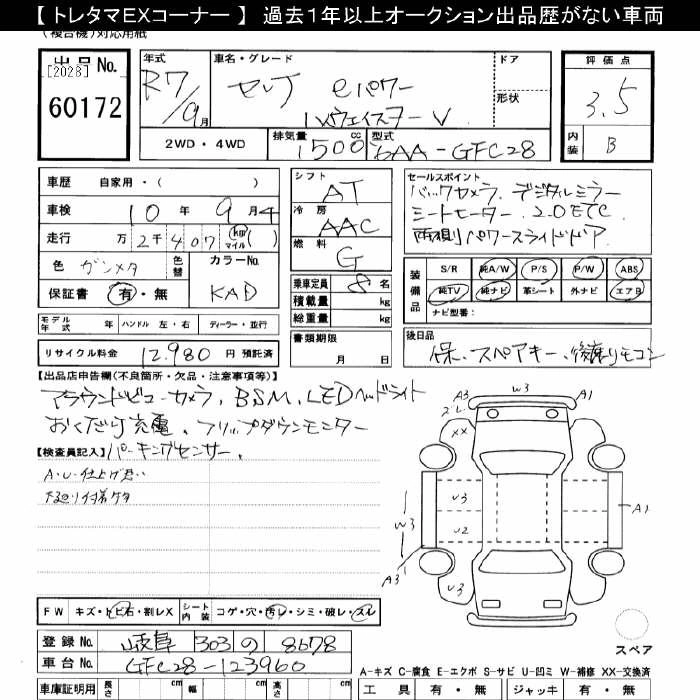 【 トレタマEXコーナー 】 過去1年以上オークション出品歴がない車両
(複合機)対応用紙
出品No.
[2028]
60172
年式
R7/9月
車名・グレード
セレナ eパワー
ハイウェイスターV
ドア
形状
評価点
3.5
内装
B
2WD・4WD
排気量
1500cc
型式
6AA-GFC28
車歴 自家用・( )
車検 10年 9月
走行 万 2千 4 0 7 km マイル ( )
色 ガンメタ
色替
カラーNo.
KAD
保証書 有・無
シフト AT
冷房 AAC
燃料 G
乗車定員 8名
積載量 kg
総重量 kg
セールスポイント
バックカメラ. デジタルミラー
シートヒーター. 2.0ETC.
両側パワースライドドア
装備品
S/R 純A/W P/S P/W ABS
純TV 純ナビ 革シート 外ナビ エアB
ナビ型番:
モデル年式 年 ハンドル 左・右 ディーラー・並行
書類期限
月 日
後日品
保. スペアキー.
リサイクル料金 12,980 円 預託済
【出品店申告欄(不良箇所・欠品・注意事項等)】
アラウンドビューカメラ. BSM. LEDヘッドライト
おくだけ充電. フリップダウンモニター
パーキングセンサー.
【検査員記入】
A・U・仕上げ
W3
A3
A1
XX
U3
U2
W3
A1
A3
U3
スペア
FW キズ・トビ石・割レX
シート内装 コゲ・穴・汚レ・シミ・破レ・スレ
登録No. 岐阜 303 の 8678
車台No. GFC28-123960
A-キズ C-腐食 E-エクボ S-サビ U-凹ミ W-補修 XX-交換済
車庫証明用 長さ cm 幅 cm 高さ cm
工具 有・無 ジャッキ 有・無